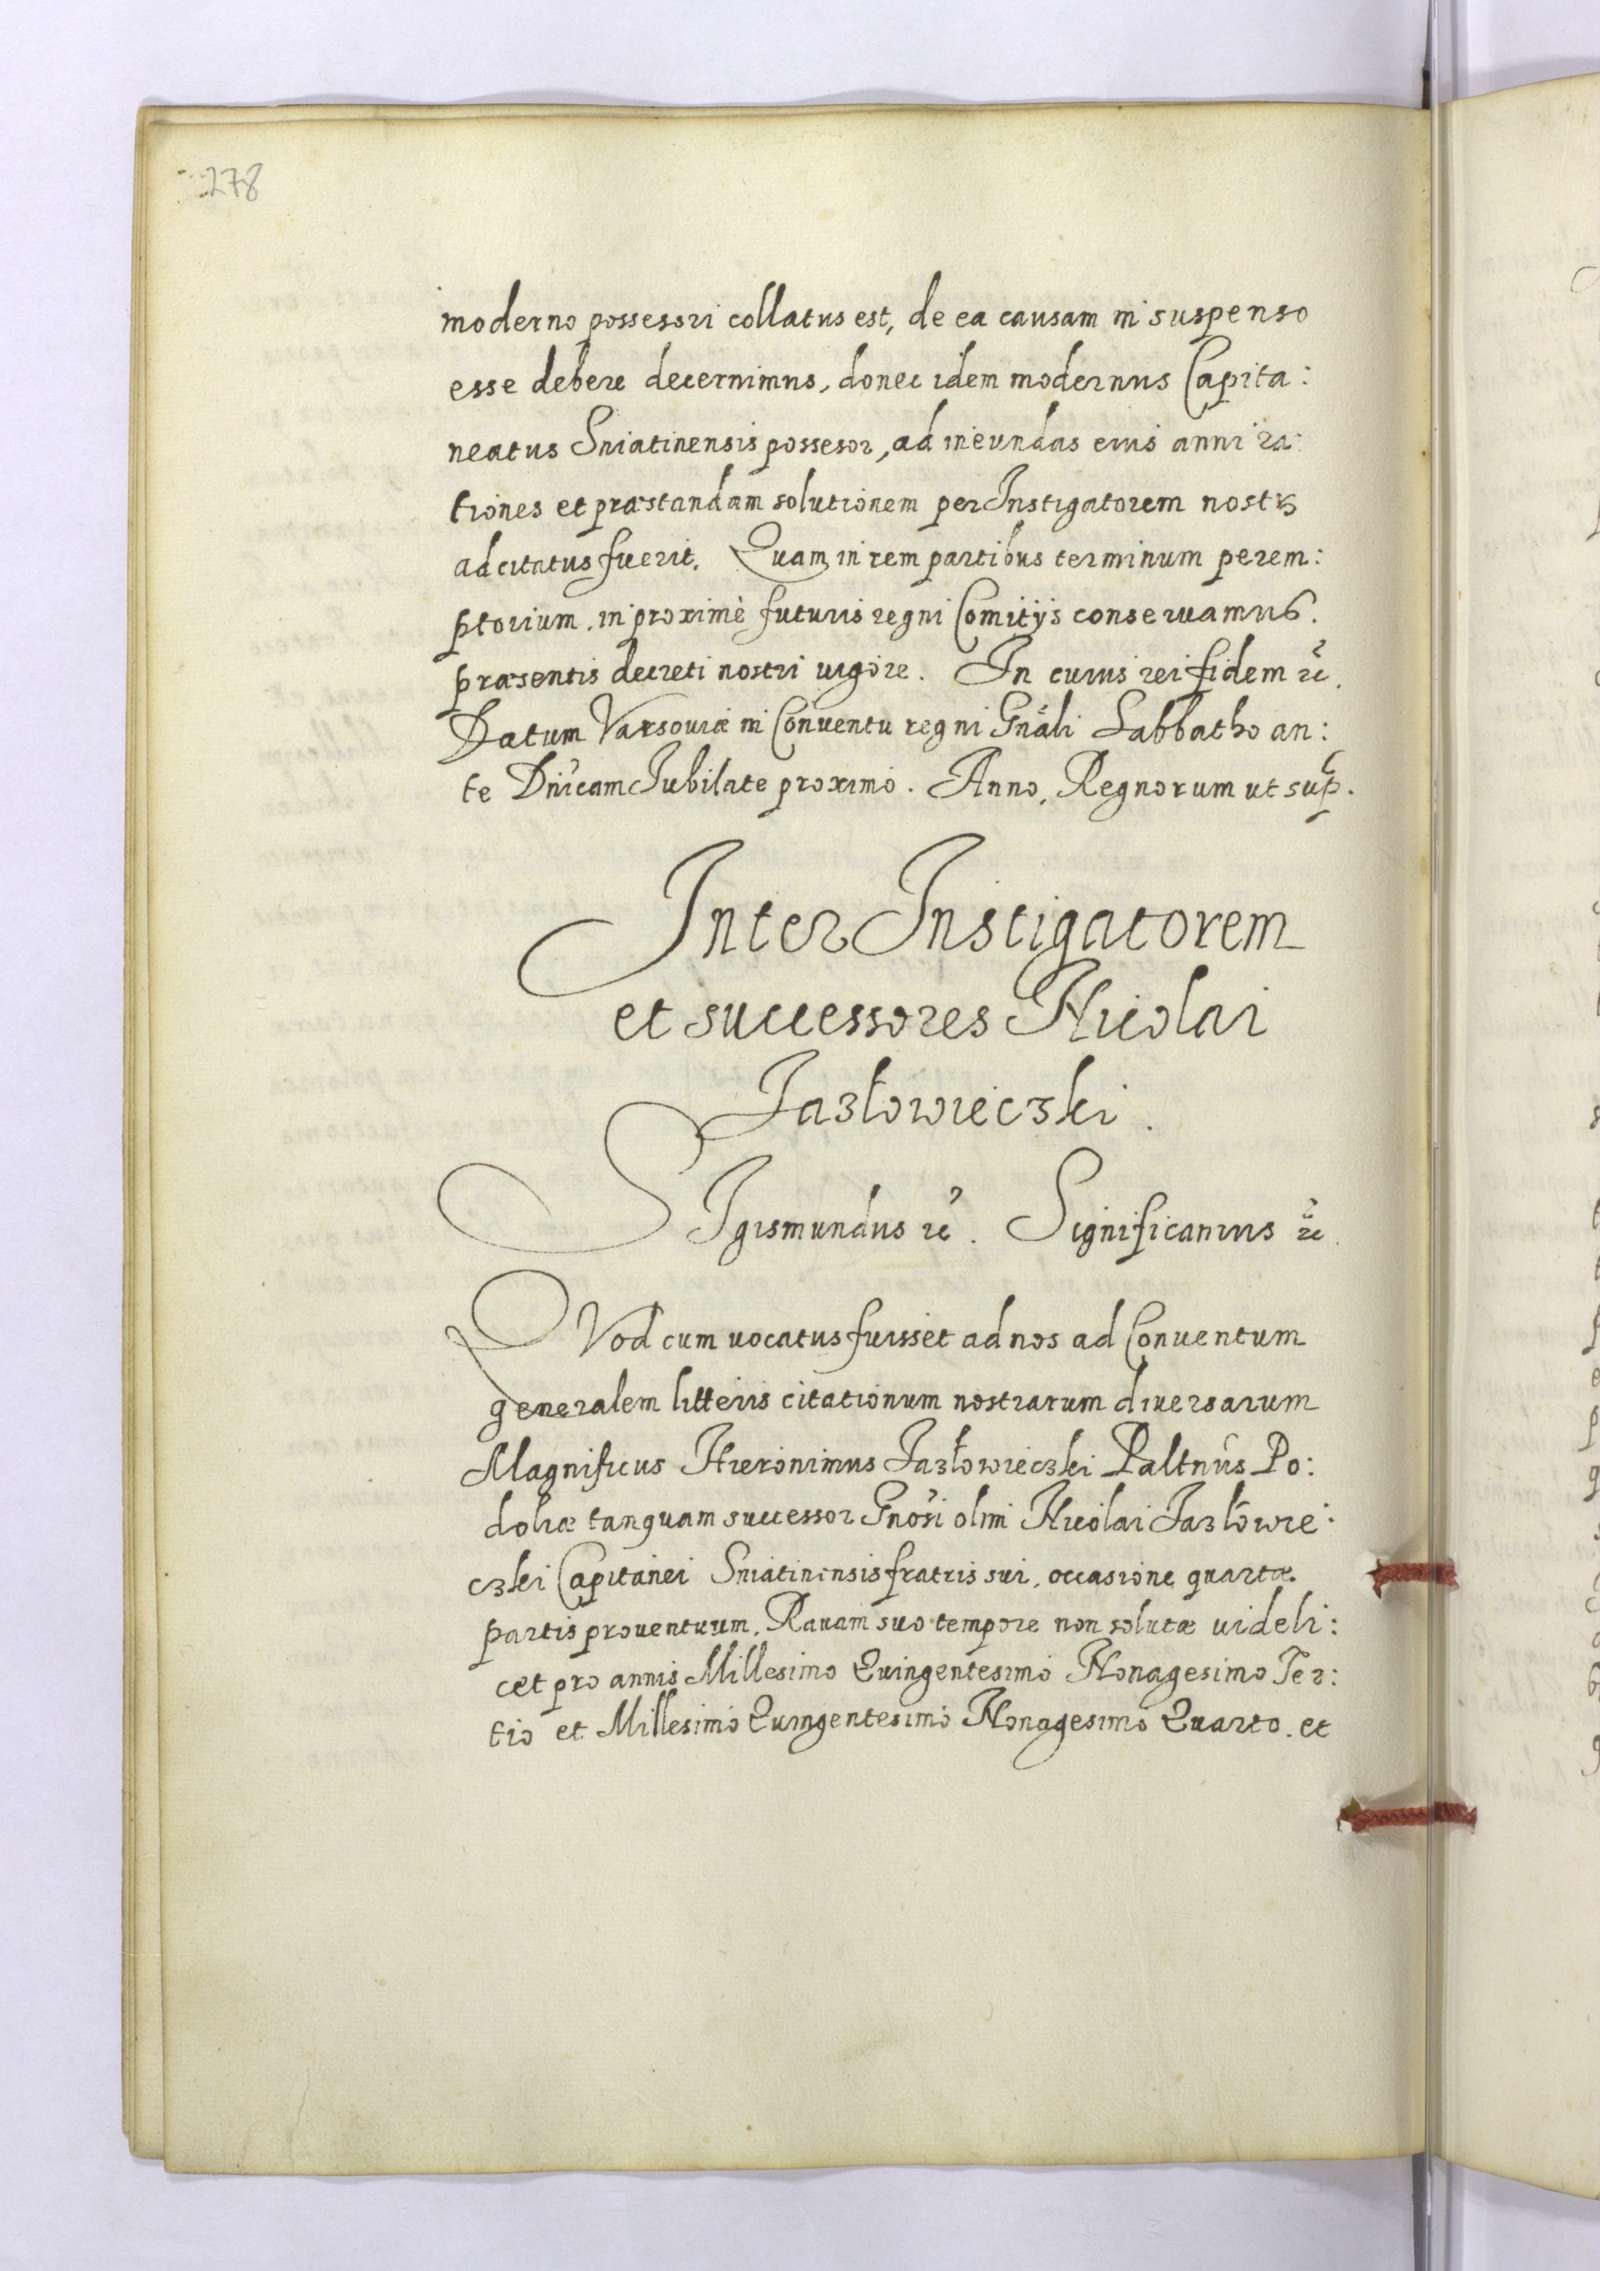 278
moderno possessori collatus est, de ea causam in suspenso
esse debere decernimus, donec idem modernus Capita:
neatus Sniatinensis possesor, ad ineundas eius anni ra:
tiones et præstandam solutionem per Instigatorem nostrũ
adcitatus fuerit. Quam in rem partibus terminum perem:
ptorium, in proximè futuris regni Comitijs conseruamus.
præsentis decreti nostri uigore. In cuius rei fidem &c.
Datum Varsouiæ in Conuentu regni Gnãli Sabbatho an:
te Dnicam Iubilate proximo. Anno, Regnorum ut sup.
Inter Instigatorem
et successores Nicolai
Jazłowieczki.
SIgismundus &c. Significamus &c.
QVod cum uocatus fuisset ad nos ad Conuentum
generalem litteris citationum nostrarum diuersarum
Magnificus Hieronimus Jazłowieczki Paltnus Po:
doliæ tanquam successor Gnosi olim Nicolai Jazłowie:
czki Capitanei Sniatinensis fratris sui, occasione quartæ
partis prouentuum, Rauam suo tempore non solutæ uideli:
cet pro annis Millesimo Quingentesimo Nonagesimo Ter:
tio et Millesimo Quingentesimo Nonagesimo Quarto. et